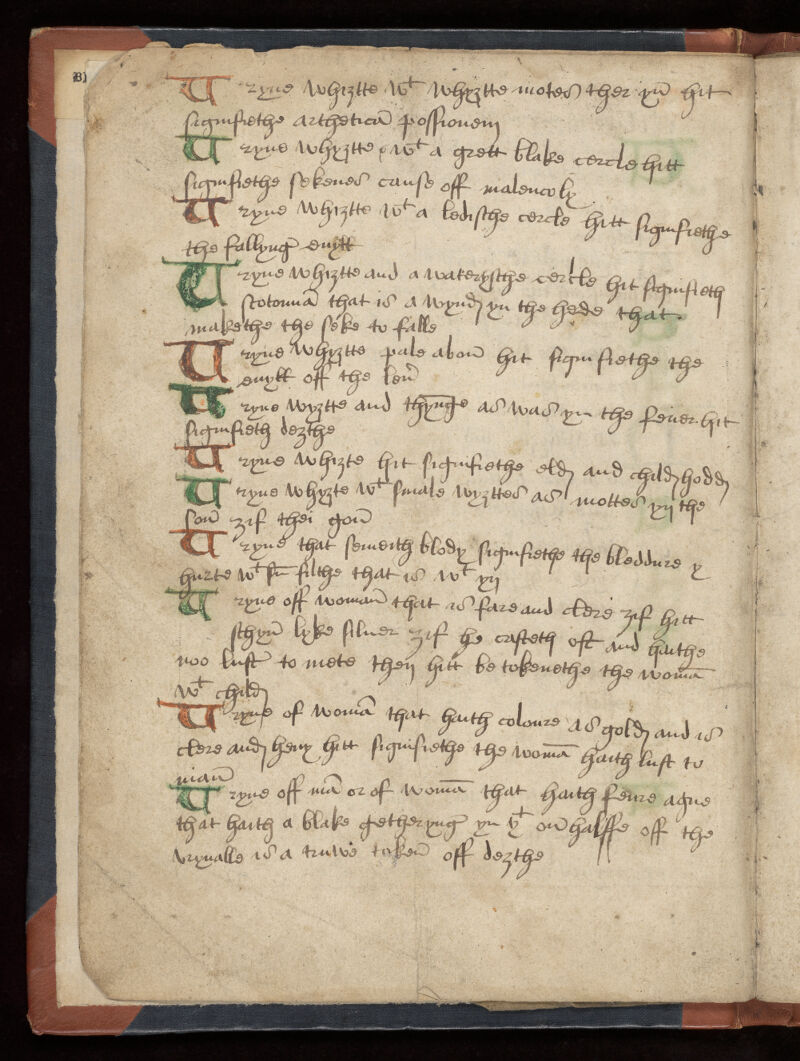 B
Uryne whiztte wt whyztte motes ther yn̄ hit
signifiethe artheticā possionem
Uryne whyztte wt a grett blake cercle hitt
signifiethe sekenes cause off malencoly
Uryne whiztte wt a ledische cercle hitt signifiethe
the fallyng evyll
Uryne whiztte and a waterysche cercle hit signifieth
scotomā that is a wynd yn the hede that
makethe the seke to falle
Uryne whyztte pale abou̅ hit signifiethe the
evyll off the leu̅
Uryne wyztte and thynge as was yn the fever hit
signifieth dezthe
Uryne whizte hit signifiethe eld and child hodd
Uryne whyzte wt smale wyzttes as mottes yn the
son̄ zif thei gon̄
Uryne that semeith blody signifiethe the bleddure y
hurte wt filthe that is wt yn
Uryne off woman̄ that is fare and clere zif hitt
schyn̄ lyke silver zif he casteth oft and haithe
noo lust to mete then hitt be tokenethe the womā
wt child
Uryne of womā that haith coloure as gold and is
clere and hevy hitt signifiethe the womā haith lust to
man̄
Uryne off mā or of womā that haith fevre ague
that haith a blake getheryng yn yt on̄ halffe off the
urynalle is a truwe token̄ off dezthe